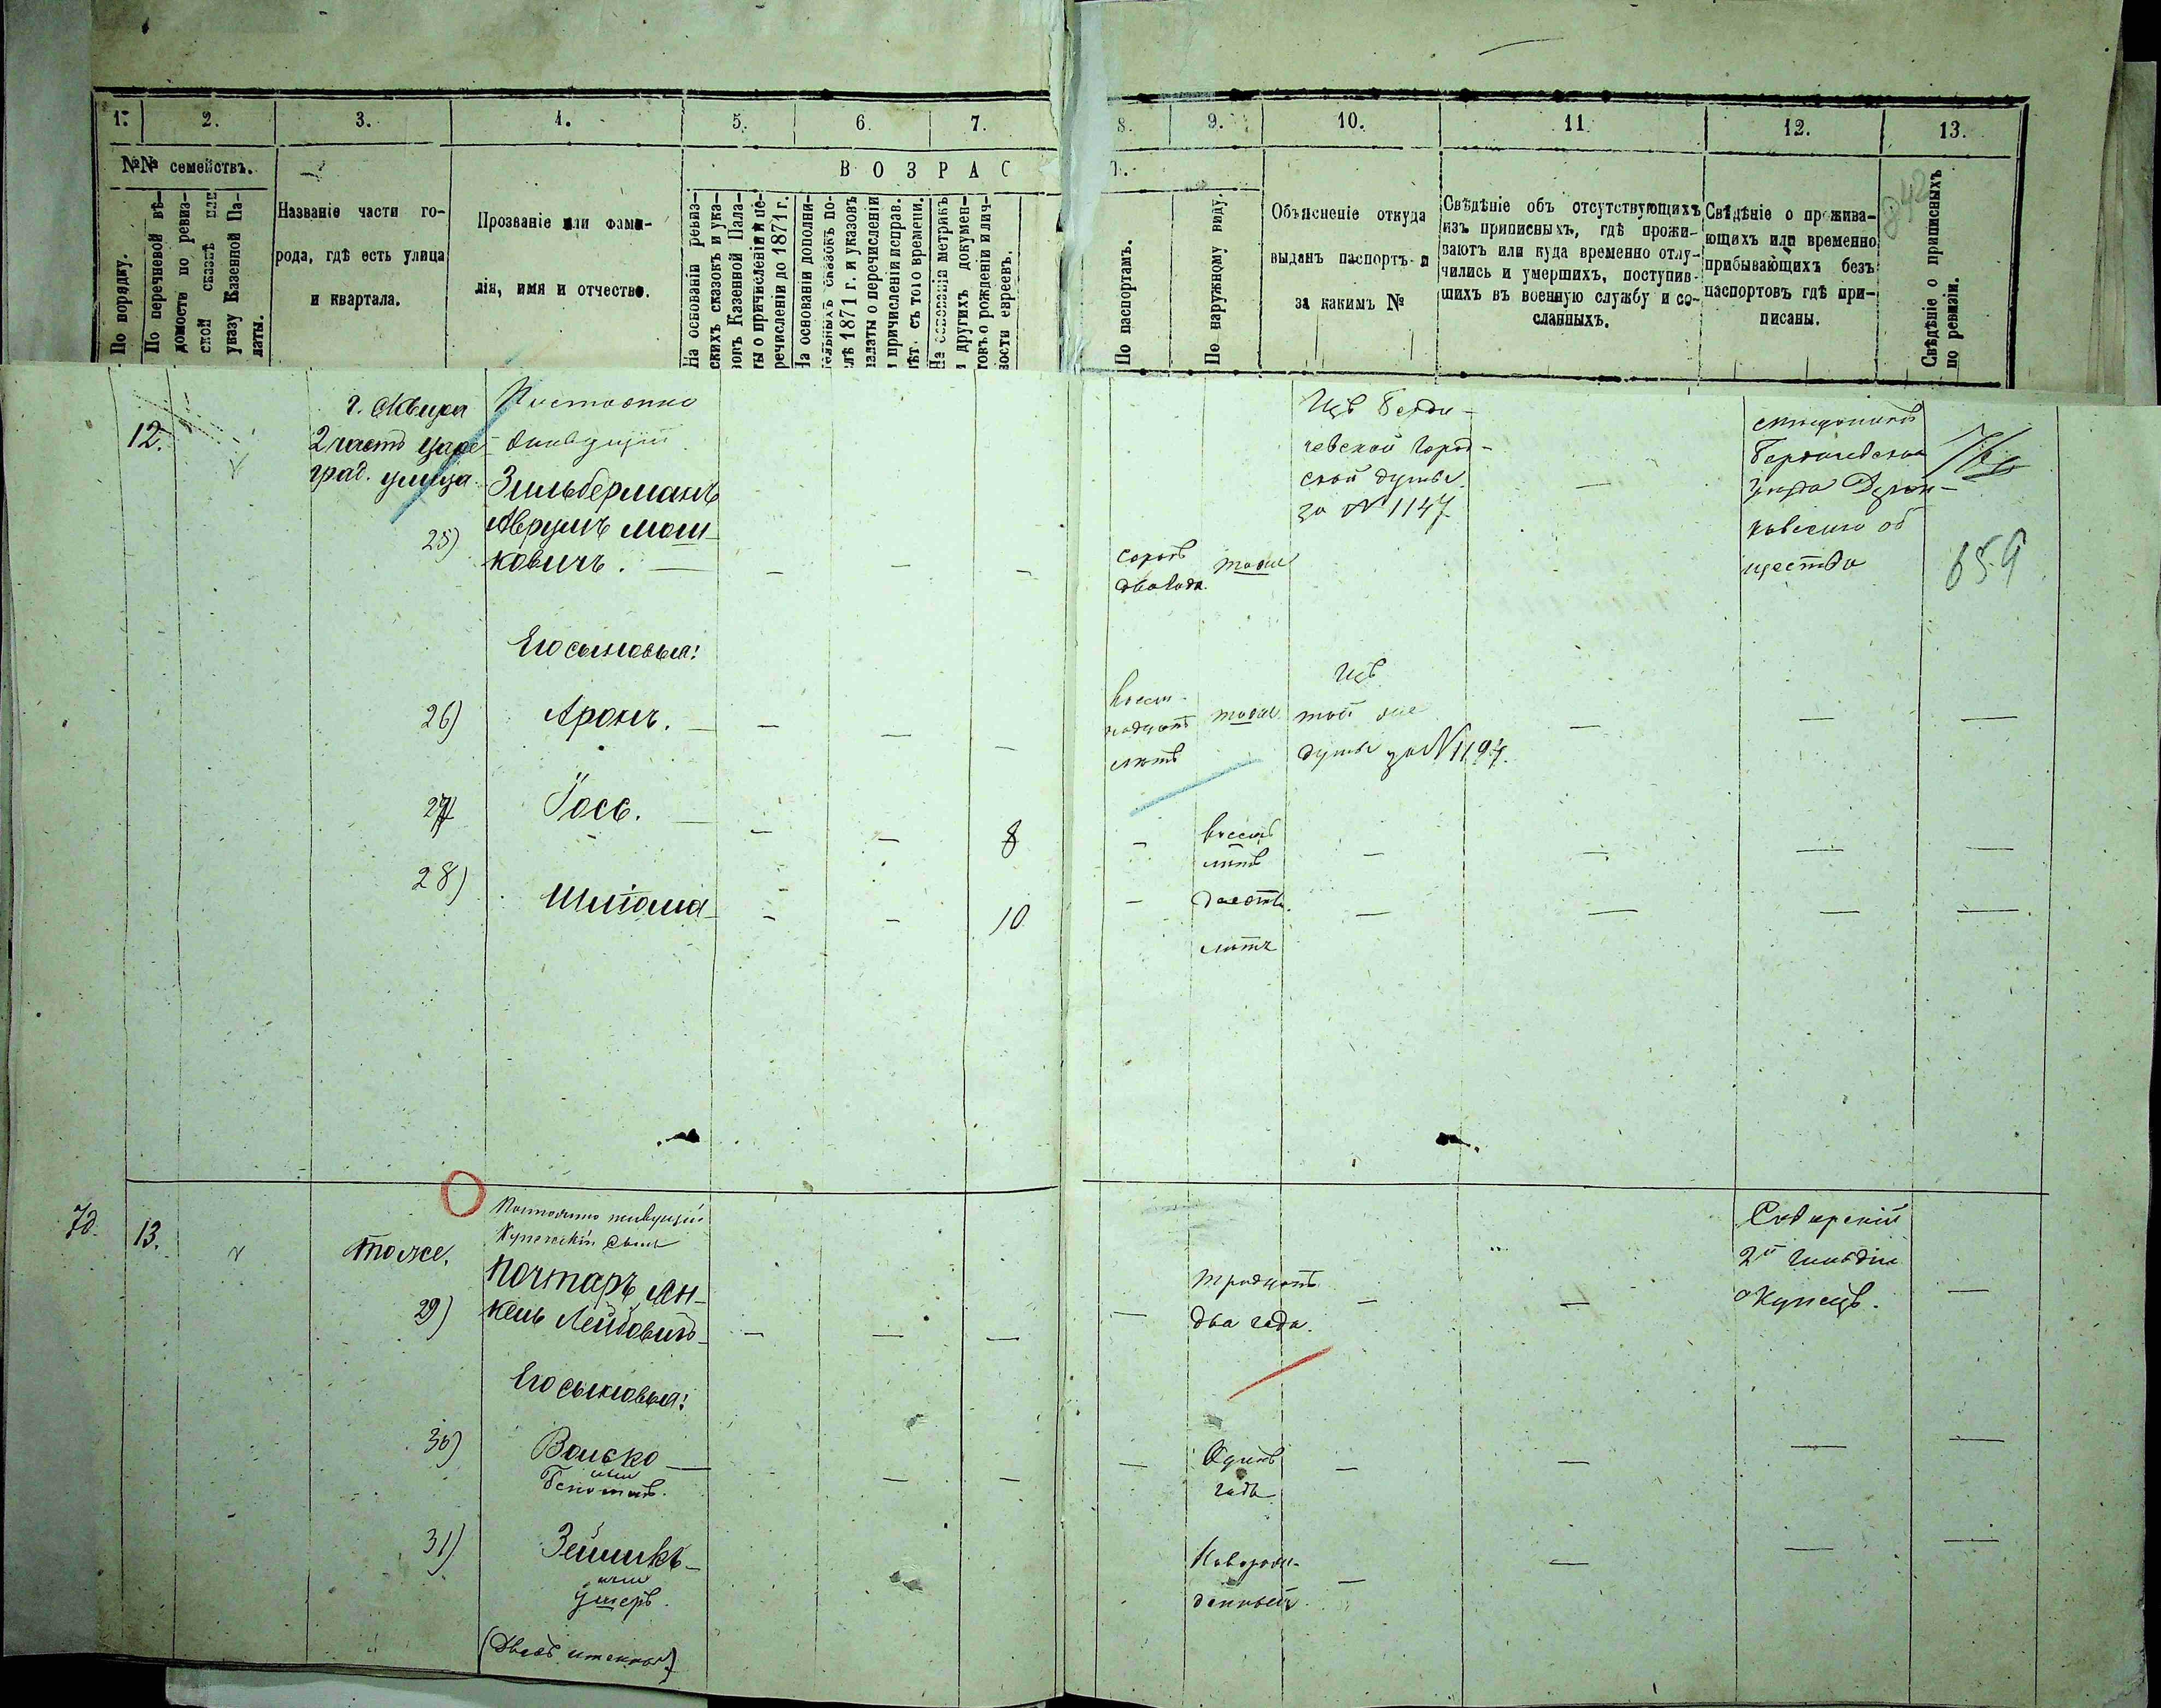 1. 2. 3. 4. 5. 6. 7. 8. 9. 10. 11. 12. 13.
№№ семействъ.
По порядку.
По перечневой вѣ-
домости по ревиз-
ской сказкѣ или
указу Казенной Па-
латы.
Названіе части го-
рода, гдѣ есть улица
и квартала.
Прозваніе или фами-
лія, имя и отчество.
ВОЗРАС
Т.
На основаніи ревиз-
скихъ сказокъ и ука-
зовъ Казенной Пала-
ты о причисленіи и пе-
речисленіи до 1871 г.
На основаніи дополни-
тельныхъ сказокъ по-
слѣ 1871 г. и указовъ
палаты о перечисленіи
и причисленіи исправ.
лѣт. съ того времени.
На основаніи метрикъ
и другихъ докумен-
товъ о рожденіи и лич-
ности евреевъ.
По паспортамъ.
По наружному виду.
Объясненіе откуда
выданъ паспортъ и
за какимъ №
Свѣдѣніе объ отсутствующихъ
изъ приписныхъ, гдѣ прожи-
ваютъ или куда временно отлу-
чились и умершихъ, поступив-
шихъ въ военную службу и со-
сланныхъ.
Свѣдѣніе о прожива-
ющихъ или временно
прибывающихъ безъ
паспортовъ гдѣ при-
писаны.
Свѣдѣніе о приписныхъ
по ревизіи.
12.
г. Сквира
2 часть Царе-
град. улица
Постоянно
живущій
Зильберманъ
25) Аврумъ Мош-
ковичъ.
сорокъ
два года.
тоже
Изъ Берди-
чевской Город-
ской думы
за № 1147
мѣщанинъ
Бердичевскаго
уѣзда
общества
659
Его сыновья:
26) Аронъ.
восем-
надцать
лѣтъ
тоже
Изъ
той же
думы за № 1194.
27) Іось. 8
восемь
лѣтъ
28) Шліома 10
десять
лѣтъ
70. 13.
тоже.
Постоянно живущій
Купеческій сынъ
Почтаръ Ян-
29) кель Лейбовичъ
тридцать
два года.
Сквирскій
2й гильдіи
Купецъ.
Его сыновья:
30) Волько
или
Одинъ
годъ
31) Зейликъ
или
Ушеръ.
Новорож-
денный.
(Двое именны)